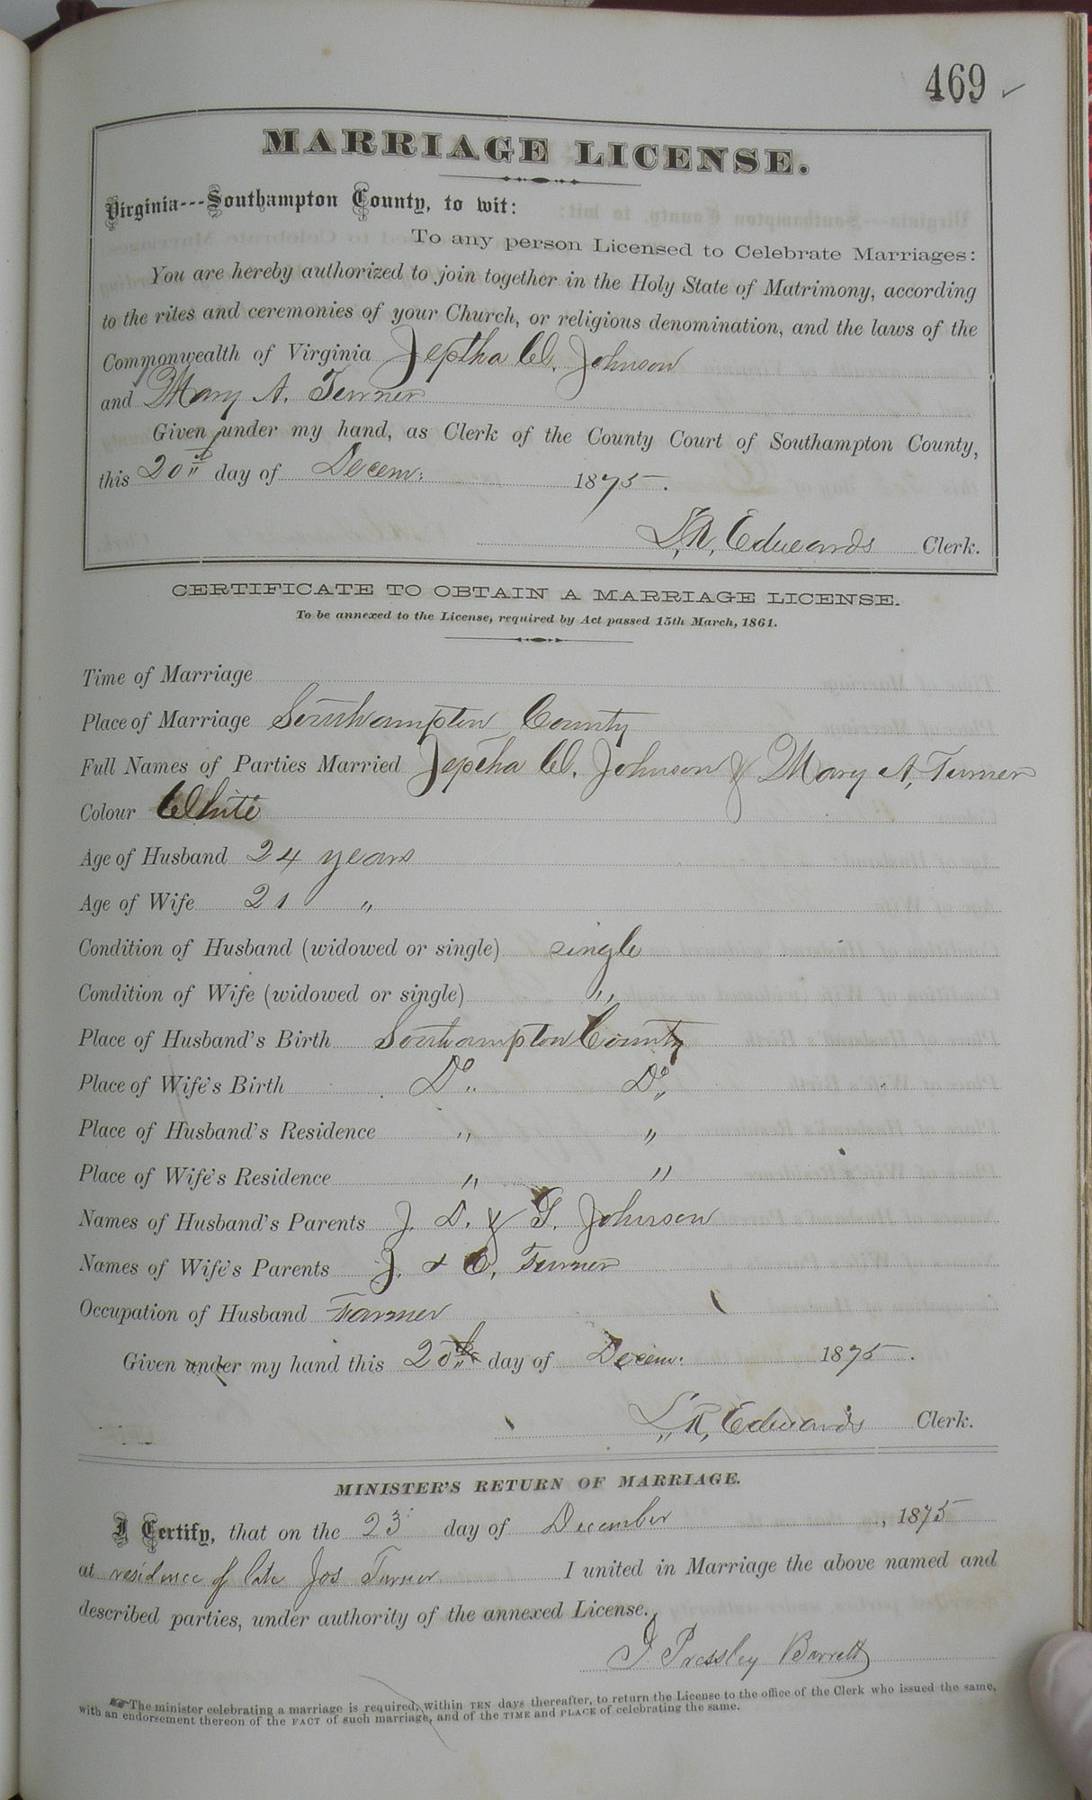 469 ✓
MARRIAGE LICENSE.
Virginia---Southampton County, to wit:
To any person Licensed to Celebrate Marriages:
You are hereby authorized to join together in the Holy State of Matrimony, according
to the rites and ceremonies of your Church, or religious denomination, and the laws of the
Commonwealth of Virginia Jeptha W. Johnson
and Mary A. Turner
Given under my hand, as Clerk of the County Court of Southampton County,
this 20th day of Decem: 1875.
L. R. Edwards Clerk.
CERTIFICATE TO OBTAIN A MARRIAGE LICENSE.
To be annexed to the License, required by Act passed 15th March, 1861.
Time of Marriage
Place of Marriage Southampton County
Full Names of Parties Married Jeptha W. Johnson & Mary A. Turner
Colour White
Age of Husband 24 years
Age of Wife 21 "
Condition of Husband (widowed or single) single
Condition of Wife (widowed or single) "
Place of Husband's Birth Southampton County
Place of Wife's Birth Do. Do.
Place of Husband's Residence " "
Place of Wife's Residence " "
Names of Husband's Parents J. D. & G. Johnson
Names of Wife's Parents J. & C. Turner
Occupation of Husband Farmer
Given under my hand this 20th day of Decem: 1875.
L. R. Edwards Clerk.
MINISTER'S RETURN OF MARRIAGE.
I Certify, that on the 23 day of December, 1875
at residence of late Jos Turner I united in Marriage the above named and
described parties, under authority of the annexed License.
J. Pressley Barrett
The minister celebrating a marriage is required, within TEN days thereafter, to return the License to the office of the Clerk who issued the same,
with an endorsement thereon of the FACT of such marriage, and of the TIME and PLACE of celebrating the same.